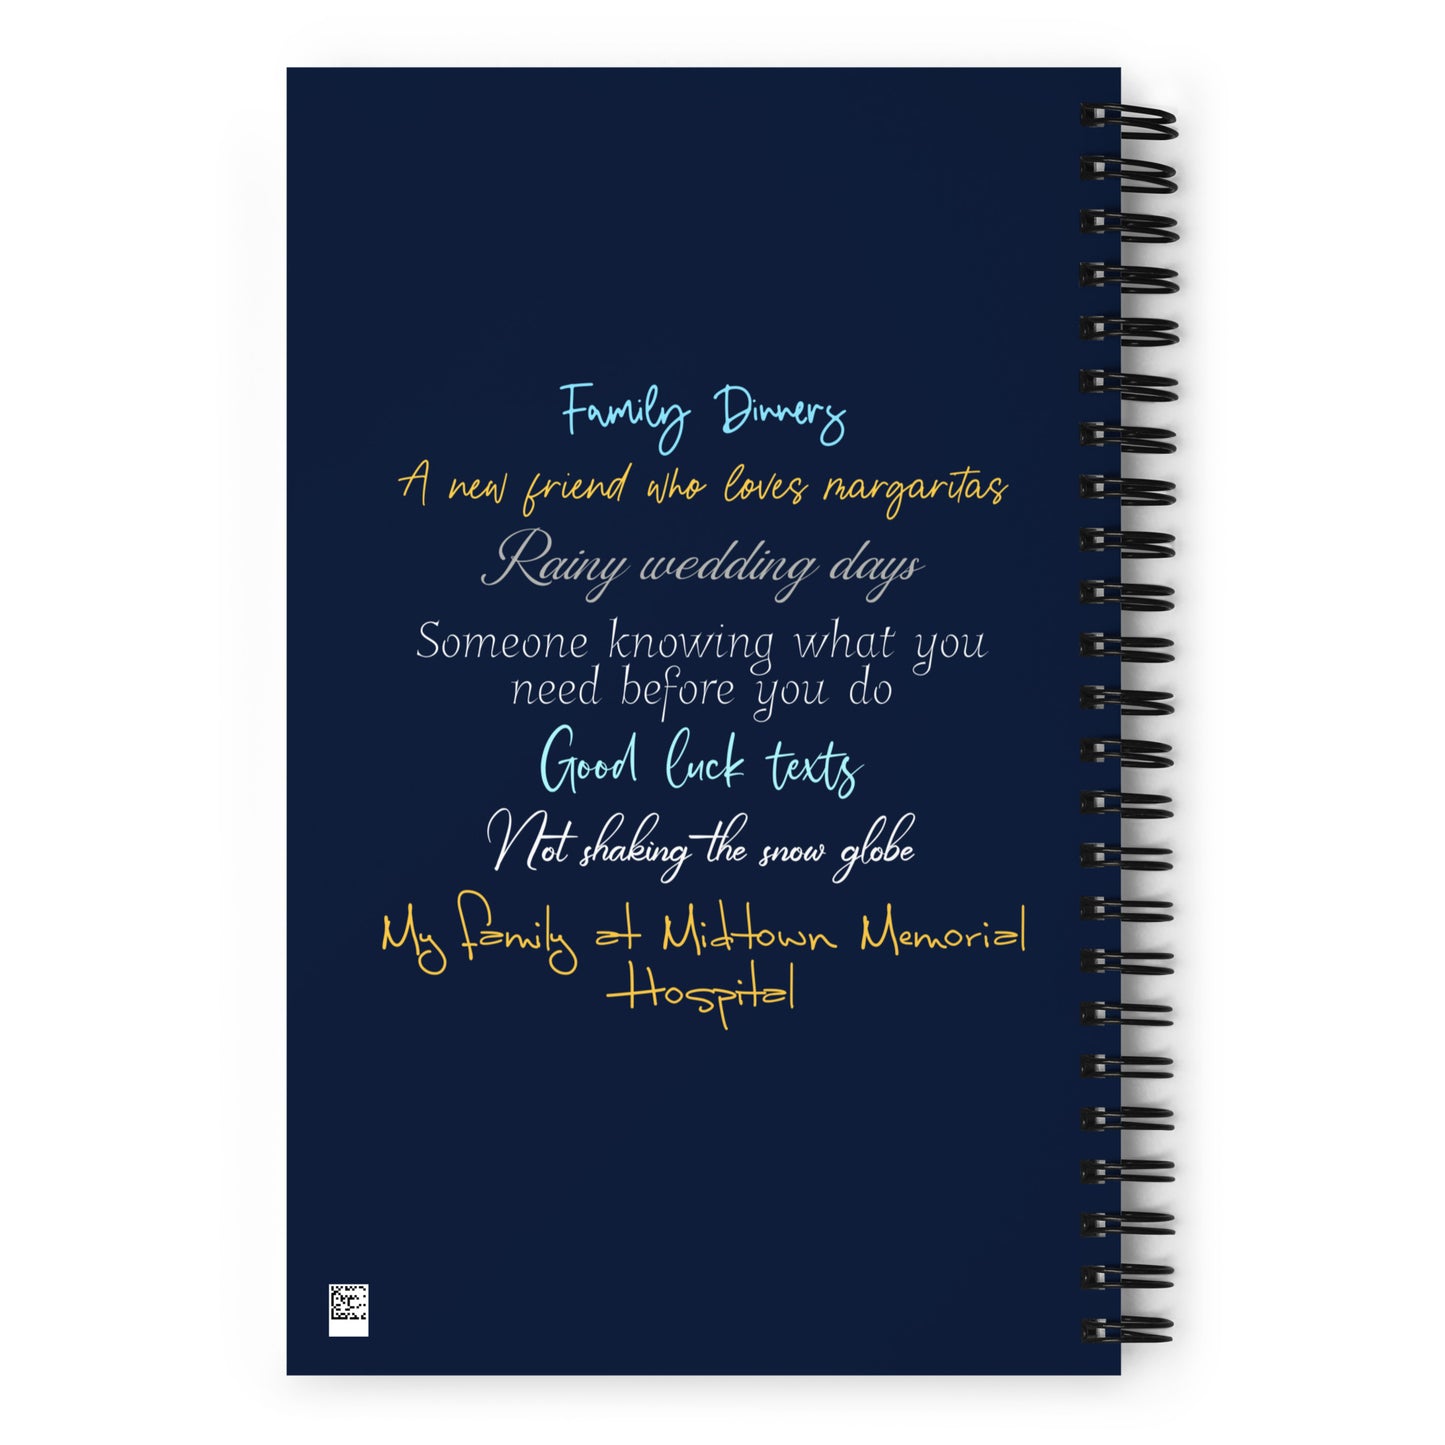 Family Dinners
A new friend who loves margaritas
Rainy wedding days
Someone knowing what you
need before you do
Good luck texts
Not shaking the snow globe
My family at Midtown Memorial
Hospital